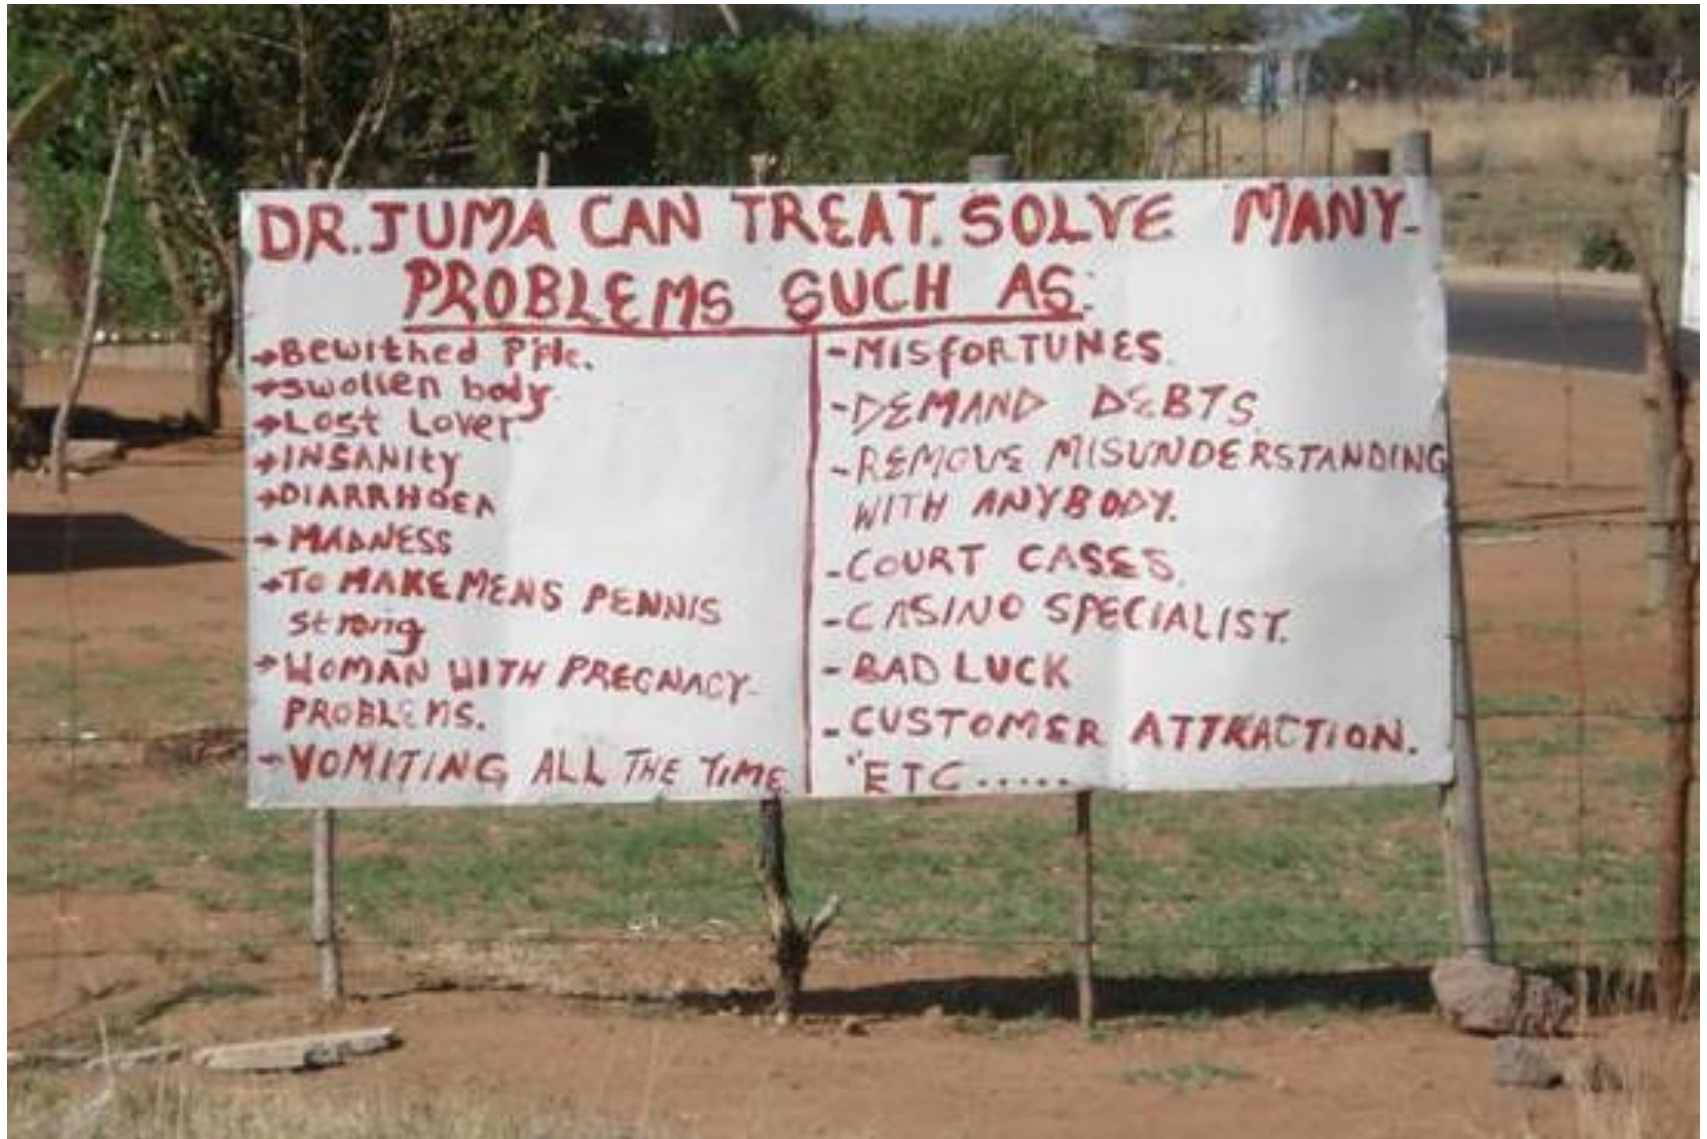 DR. JUMA CAN TREAT. SOLVE MANY-
PROBLEMS SUCH AS:
→Bewithed P'ple.
→Swollen body
→Lost Lover.
→INSANITY
→DIARRHOEA
→MADNESS
→TO MAKE MENS PENNIS
strong
→WOMAN WITH PREGNACY-
PROBLEMS.
→VOMITING ALL THE TIME
-MISfORTUNES.
-DEMAND DEBTS
-REMOVE MISUNDERSTANDING
WITH ANYBODY.
-COURT CASES.
-CASINO SPECIALIST.
-BAD LUCK
-CUSTOMER ATTRACTION.
"ETC.....